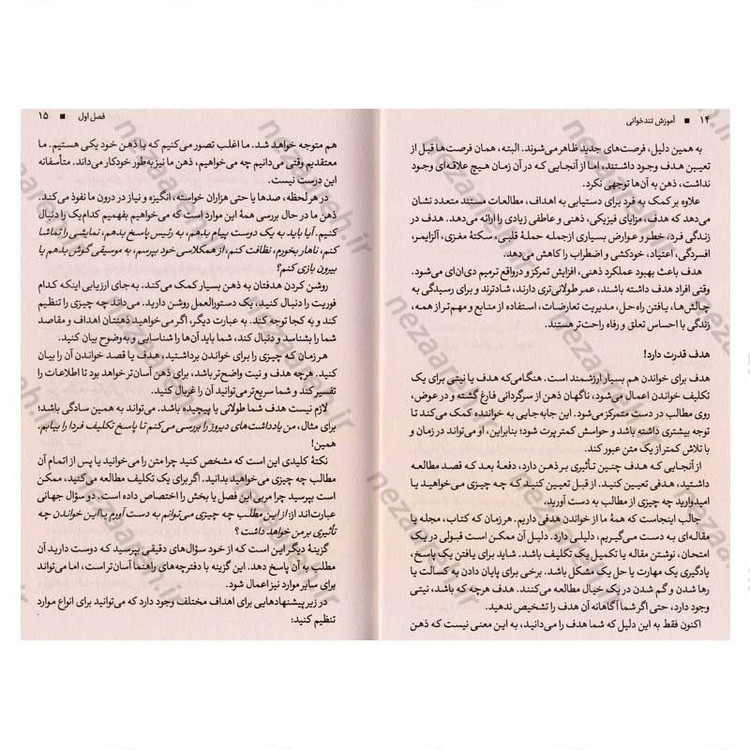 ۱۴ ■ آموزش تندخوانی
به همین دلیل، فرصت‌های جدید ظاهر می‌شوند. البته، همان فرصت‌ها قبل از
تعیین هدف وجود داشتند، اما از آنجایی که در آن زمان هیچ علاقه‌ای وجود
نداشت، ذهن به آن‌ها توجهی نکرد.
علاوه بر کمک به فرد برای دستیابی به اهداف، مطالعات مستند متعدد نشان
می‌دهد که هدف، مزایای فیزیکی، ذهنی و عاطفی زیادی را ارائه می‌دهد. هدف در
زندگی فرد، خطر و عوارض بسیاری ازجمله حملهٔ قلبی، سکتهٔ مغزی، آلزایمر،
افسردگی، اعتیاد، خودکشی و اضطراب را کاهش می‌دهد.
هدف باعث بهبود عملکرد ذهنی، افزایش تمرکز و درواقع ترمیم دی‌ان‌ای می‌شود.
وقتی افراد هدف داشته باشند، عمر طولانی‌تری دارند، شادترند و برای رسیدگی به
چالش‌ها، یافتن راه حل، مدیریت تعارضات، استفاده از منابع و مهم‌تر از همه،
زندگی با احساس تعلق و رفاه راحت‌تر هستند.
هدف قدرت دارد!
هدف برای خواندن هم بسیار ارزشمند است. هنگامی‌که هدف یا نیتی برای یک
تکلیف خواندن اعمال می‌شود، ناگهان ذهن از سرگردانی فارغ گشته و در عوض،
روی مطالب در دست متمرکز می‌شود. این جابه‌جایی به خواننده کمک می‌کند تا
توجه بیشتری داشته باشد و حواسش کمتر پرت شود؛ بنابراین، او می‌تواند در زمان و
با تلاش کمتر از یک متن عبور کند.
از آنجایی که هدف چنین تأثیری بر ذهن دارد، دفعهٔ بعد که قصد مطالعه
داشتید، هدفی تعیین کنید. از قبل تعیین کنید که چه چیزی می‌خواهید یا
امیدوارید چه چیزی از مطالب به دست آورید.
جالب اینجاست که همهٔ ما از خواندن هدفی داریم. هر زمان که کتاب، مجله یا
مقاله‌ای به دست می‌گیریم، دلیلی دارد. دلیل آن ممکن است قبولی در یک
امتحان، نوشتن مقاله یا تکمیل یک تکلیف باشد. شاید برای یافتن یک پاسخ،
یادگیری یک مهارت یا حل یک مشکل باشد. برخی برای پایان دادن به کسالت یا
رها شدن و گم شدن در یک خیال مطالعه می‌کنند. هدف هرچه که باشد، نیتی
وجود دارد، حتی اگر شما آگاهانه آن هدف را تشخیص ندهید.
اکنون فقط به این دلیل که شما هدف را می‌دانید، به این معنی نیست که ذهن
فصل اول ■ ۱۵
هم متوجه خواهد شد. ما اغلب تصور می‌کنیم که با ذهن خود یکی هستیم. ما
معتقدیم وقتی می‌دانیم چه می‌خواهیم، ذهن ما نیز به‌طور خودکار می‌داند. متأسفانه
این درست نیست.
در هر لحظه، صدها یا حتی هزاران خواسته، انگیزه و نیاز در درون ما نفوذ می‌کند.
ذهن ما در حال بررسی همهٔ این موارد است که می‌خواهیم بفهمیم کدام‌یک را دنبال
کنیم. آیا باید به یک دوست پیام بدهم، به رئیس پاسخ بدهم، نمایشی را تماشا
کنم، ناهار بخورم، نظافت کنم، از همکلاسی خود بپرسم، به موسیقی گوش بدهم یا
بیرون بازی کنم؟
روشن کردن هدفتان به ذهن بسیار کمک می‌کند. به جای ارزیابی اینکه کدام
فوریت را دنبال کنید، یک دستورالعمل روشن دارید. می‌داند چه چیزی را تنظیم
کند و به کجا توجه کند. به عبارت دیگر، اگر می‌خواهید ذهنتان اهداف و مقاصد
شما را بشناسد و دنبال کند، شما باید آن‌ها را شناسایی و به‌وضوح بیان کنید.
هر زمان که چیزی را برای خواندن برداشتید، هدف یا قصد خواندن آن را بیان
کنید. هرچه هدف و نیت واضح‌تر باشد، برای ذهن آسان‌تر خواهد بود تا اطلاعات را
تفسیر کند و شما سریع‌تر می‌توانید آن را غربال کنید.
لازم نیست هدف شما طولانی یا پیچیده باشد. می‌تواند به همین سادگی باشد؛
برای مثال، من یادداشت‌های دیروز را بررسی می‌کنم تا پاسخ تکلیف فردا را بیابم.
همین!
نکتهٔ کلیدی این است که مشخص کنید چرا متن را می‌خوانید یا پس از اتمام آن
مطالب چه چیزی می‌خواهید بدانید. اگر برای یک تکلیف مطالعه می‌کنید، ممکن
است بپرسید چرا مربی این فصل یا بخش را اختصاص داده است. دو سؤال جهانی
عبارت‌اند از: از این مطالب چه چیزی می‌توانم به دست آورم یا این خواندن چه
تأثیری بر من خواهد داشت؟
گزینهٔ دیگر این است که از خود سؤال‌های دقیقی بپرسید که دوست دارید آن
مطلب به آن پاسخ دهد. این گزینه با دفترچه‌های راهنما آسان‌تر است، اما می‌تواند
برای سایر موارد نیز اعمال شود.
در زیر پیشنهادهایی برای اهداف مختلف وجود دارد که می‌توانید برای انواع موارد
تنظیم کنید:
nezaareh.ir